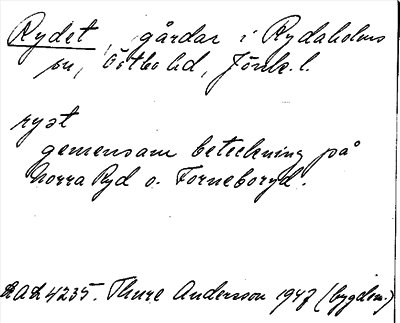 Rydet, gårdar i Rydaholms
sn, Östbo hd, Jönk. l.
ryət
gemensam beteckning på
Norra Ryd o. Torneboryd.
DAL 4235. Thure Andersson 1947 (bygdem.)